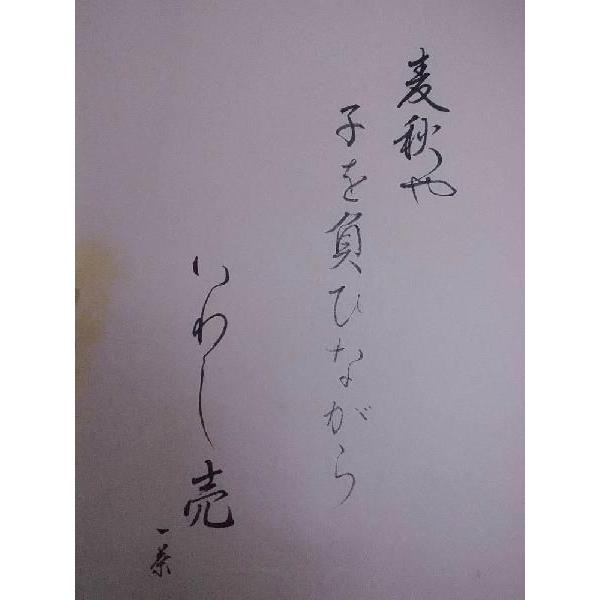 麦秋や
子を負ひながら
いわし売
一茶